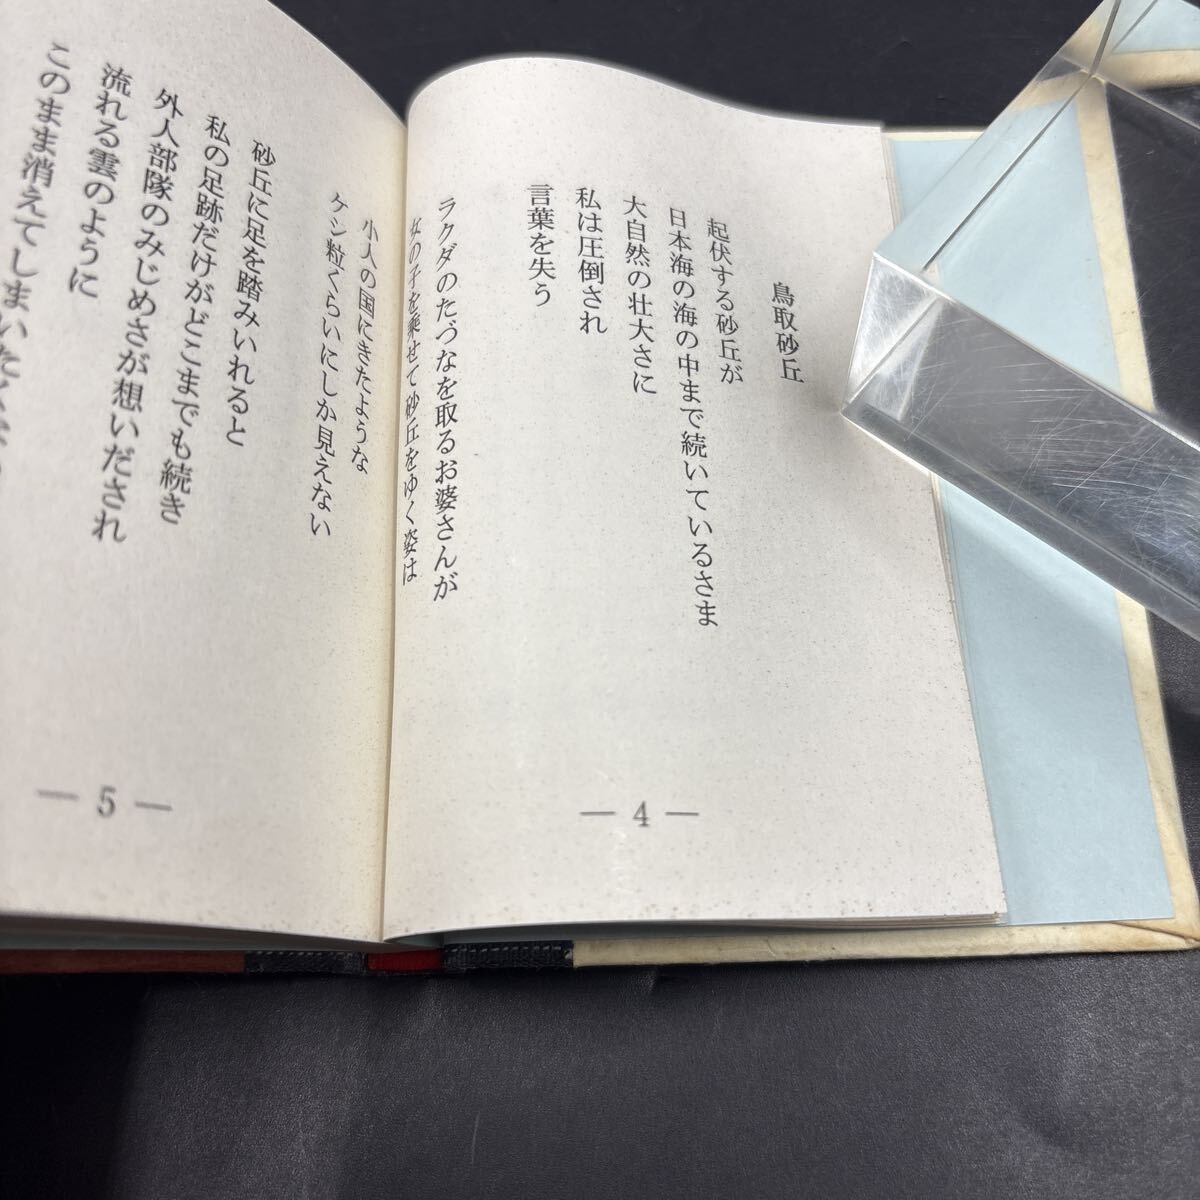 鳥取砂丘
起伏する砂丘が
日本海の海の中まで続いているさま
大自然の壮大さに
私は圧倒され
言葉を失う
ラクダのたづなを取るお婆さんが
女の子を乗せて砂丘をゆく姿は
— 4 —
小人の国にきたような
ケシ粒くらいにしか見えない
砂丘に足を踏みいれると
私の足跡だけがどこまでも続き
外人部隊のみじめさが想いだされ
流れる雲のように
このまま消えてしまいたく
— 5 —